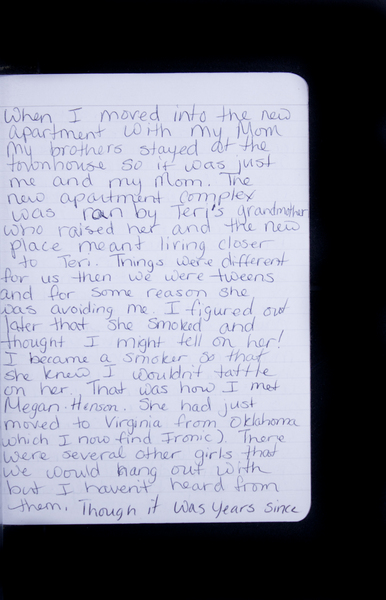 When I moved into the new
apartment with my Mom
my brothers stayed at the
townhouse so it was just
me and my Mom. The
new apartment complex
was ran by Teri's grandmother
who raised her and the new
place meant living closer
to Teri. Things were different
for us then we were tweens
and for some reason she
was avoiding me. I figured out
later that she smoked and
thought I might tell on her!
I became a smoker so that
she knew I wouldn't tattle
on her. That was how I met
Megan Henson. She had just
moved to Virginia from Oklahoma
which I now find Ironic). There
were several other girls that
we would hang out with
but I haven't heard from
them. Though it was years since